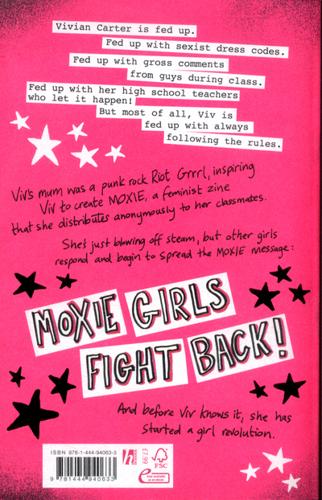 Vivian Carter is fed up.
Fed up with sexist dress codes.
Fed up with gross comments
from guys during class.
Fed up with her high school teachers
who let it happen!
But most of all, Viv is
fed up with always
following the rules.
Viv's mum was a punk rock Riot Grrrl, inspiring
Viv to create MOXIE, a feminist zine
that she distributes anonymously to her classmates.
She's just blowing off steam, but other girls
respond and begin to spread the MOXIE message:
MOXIE GIRLS
FIGHT BACK!
And before Viv knows it, she has
started a girl revolution.
ISBN 978-1-444-94063-3
9 781444 940633
FSC